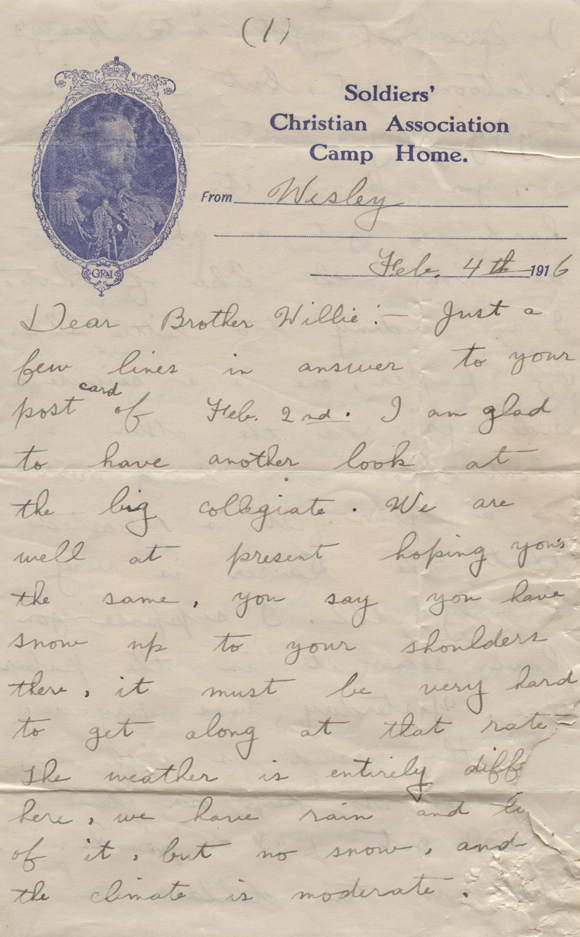 (1)
Soldiers'
Christian Association
Camp Home.
From Wisley
Feb. 4th 1916
GRI
Dear Brother Willie:— Just a
few lines in answer to your
post card of Feb. 2nd. I am glad
to have another look at
the big collegiate. We are
well at present hoping your's
the same, you say you have
snow up to your shoulders
there, it must be very hard
to get along at that rate
The weather is entirely diff
here, we have rain and
of it, but no snow, and
the climate is moderate.